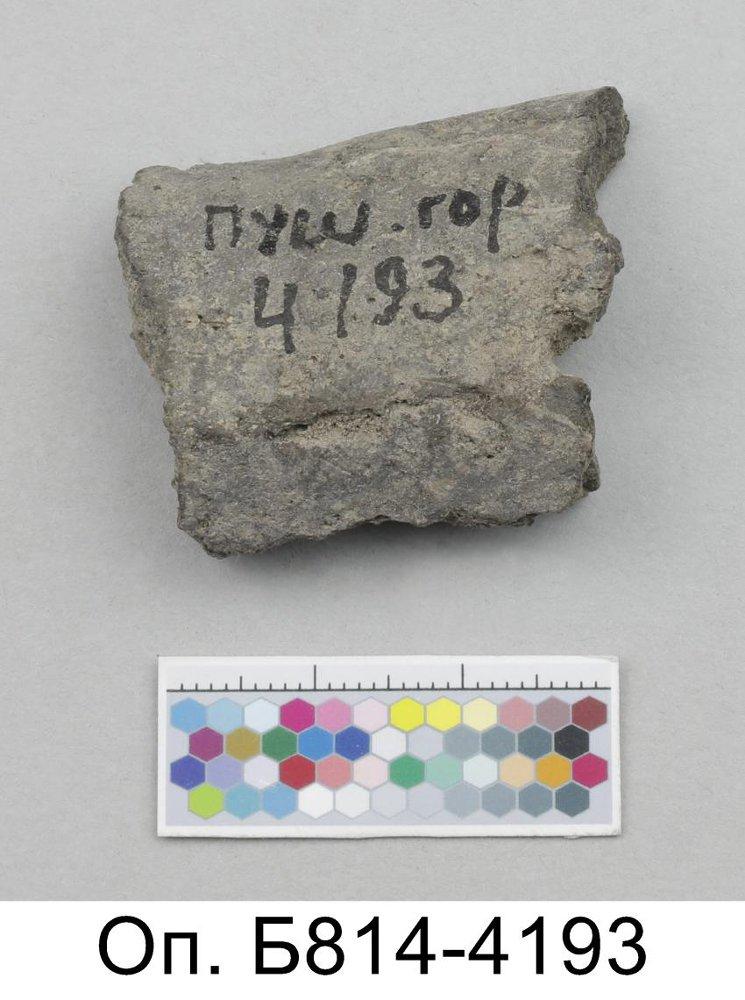 пуш.гор
4193
Оп. Б814-4193